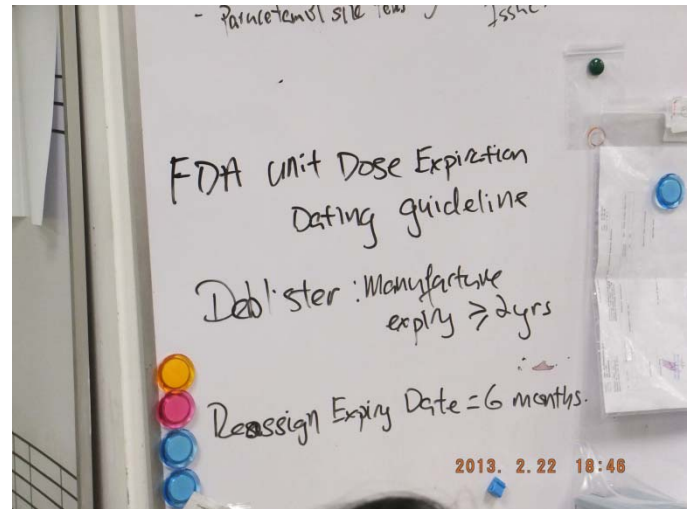 - Paracetamol
FDA Unit Dose Expiration
Dating guideline
Deblister : Manufacture
expiry ≥ 2yrs
Reassign Expiry Date = 6 months.
2013. 2.22 18:46